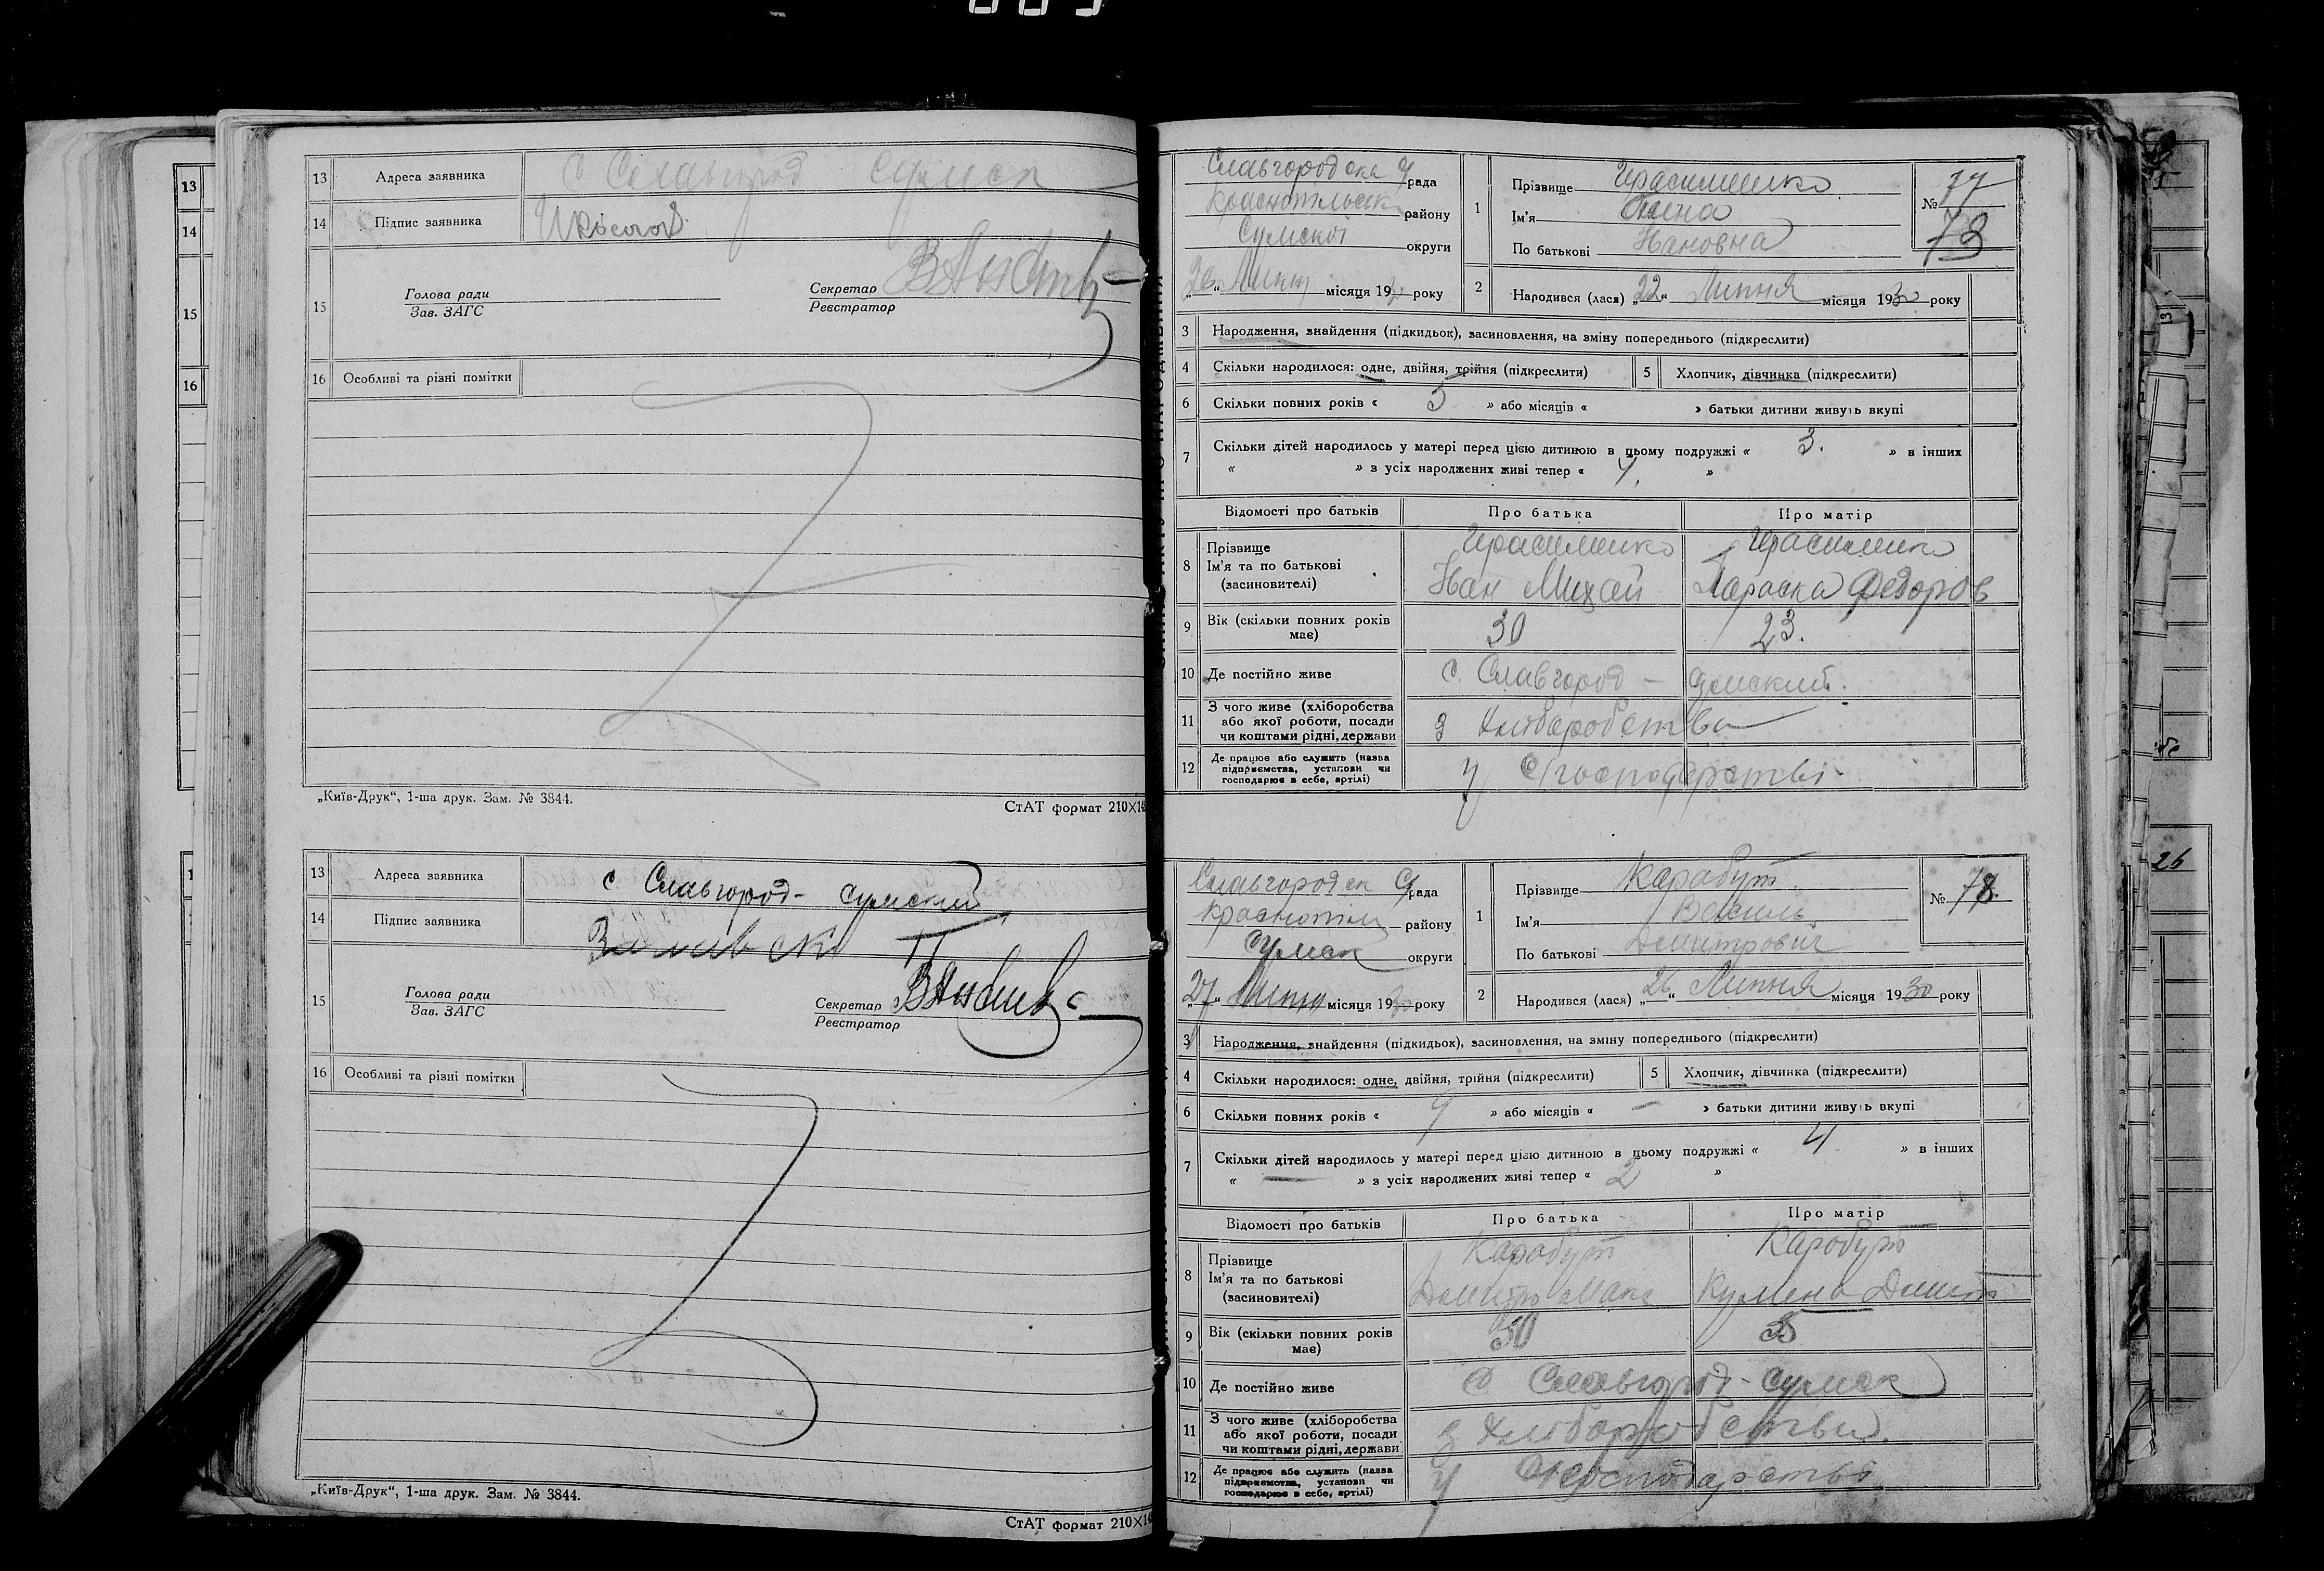 13 Адреса заявника с Славгород Сумск
14 Підпис заявника
15 Голова ради
Зав. ЗАГС
Секретар
Реєстратор
16 Особливі та різні помітки
„Київ-Друк“, 1-ша друк. Зам. № 3844.
СтАТ формат 210×14
13 Адреса заявника с Славгород- Сумский
14 Підпис заявника
15 Голова ради
Зав. ЗАГС
Секретар
Реєстратор
16 Особливі та різні помітки
„Київ-Друк“, 1-ша друк. Зам. № 3844.
СтАТ формат 210×14
Славгородска рада
Краснопільск району
Сумскої округи
місяця 193 року
1 Прізвище Герасименко
Ім'я
По батькові Івановна
№ 77
78
2 Народився (лася) „22“ Липня місяця 1930 року
3 Народження, знайдення (підкидьок), засиновлення, на зміну попереднього (підкреслити)
4 Скільки народилося: одне, двійня, трійня (підкреслити)
5 Хлопчик, дівчинка (підкреслити)
6 Скільки повних років « 5 » або місяців « » батьки дитини живуть вкупі
7 Скільки дітей народилось у матері перед цією дитиною в цьому подружжі « 3. » в інших
« » з усіх народжених живі тепер « 4. »
Відомості про батьків Про батька Про матір
8 Прізвище
Ім'я та по батькові
(засновителі)
Герасименко
Іван Михай
Герасименко
Параска Федоров
9 Вік (скільки повних років має) 30 23.
10 Де постійно живе с. Славгород – Сумский.
11 З чого живе (хліборобства
або якої роботи, посади
чи коштами рідні, держави
з хліборобства
12 Де працює або служить (назва
підприємства, установи чи
господарює в себе, артілі)
у С/господарстві
Славгородск рада
Краснопіл району
Сумск округи
„27“ Липня місяця 1930 року
1 Прізвище Карабут
Ім'я Василь
По батькові Дмитрович
№ 78.
2 Народився (лася) „26“ Липня місяця 1930 року
3 Народження, знайдення (підкидьок), засиновлення, на зміну попереднього (підкреслити)
4 Скільки народилося: одне, двійня, трійня (підкреслити)
5 Хлопчик, дівчинка (підкреслити)
6 Скільки повних років « 9 » або місяців « – » батьки дитини живуть вкупі
7 Скільки дітей народилось у матері перед цією дитиною в цьому подружжі « 4 » в інших
« — » з усіх народжених живі тепер « 2 »
Відомості про батьків Про батька Про матір
8 Прізвище
Ім'я та по батькові
(засиновителі)
Карабут
Дмитро Макс
Карабут
Дмит
9 Вік (скільки повних років має) 30
10 Де постійно живе с Славгород - Сумск
11 З чого живе (хліборобства
або якої роботи, посади
чи коштами рідні, держави
з хліборобства.
12 Де працює або служить (назва
підприємства, установи чи
господарює в себе, артілі)
у С/господарстві
13
14
15
16
26